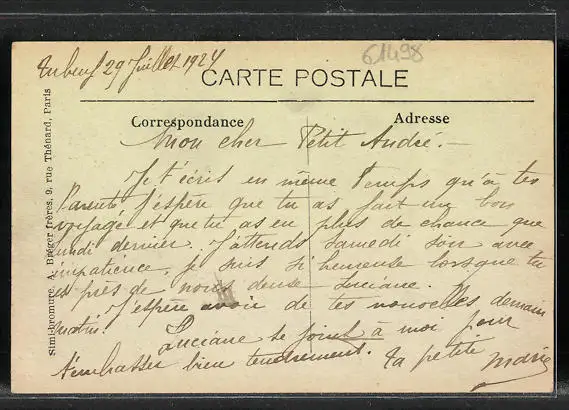 29 Juillet 1924
61498
CARTE POSTALE
Correspondance
Adresse
Mon cher Petit André. -
Je t'écris en même temps qu'à tes
Parents J'espère que tu as fait un bon
voyage et que tu as eu plus de chance que
lundi dernier. J'attends samedi soir avec
impatience. Je suis si heureuse lorsque tu
es près de nous deux Luciane.
J'espère avoir de tes nouvelles demain
matin.
Luciane se joint à moi pour
t'embrasser bien tendrement. ta petite
Marie
Simi-bromure. A. Breger frères, 9, rue Thénard, Paris